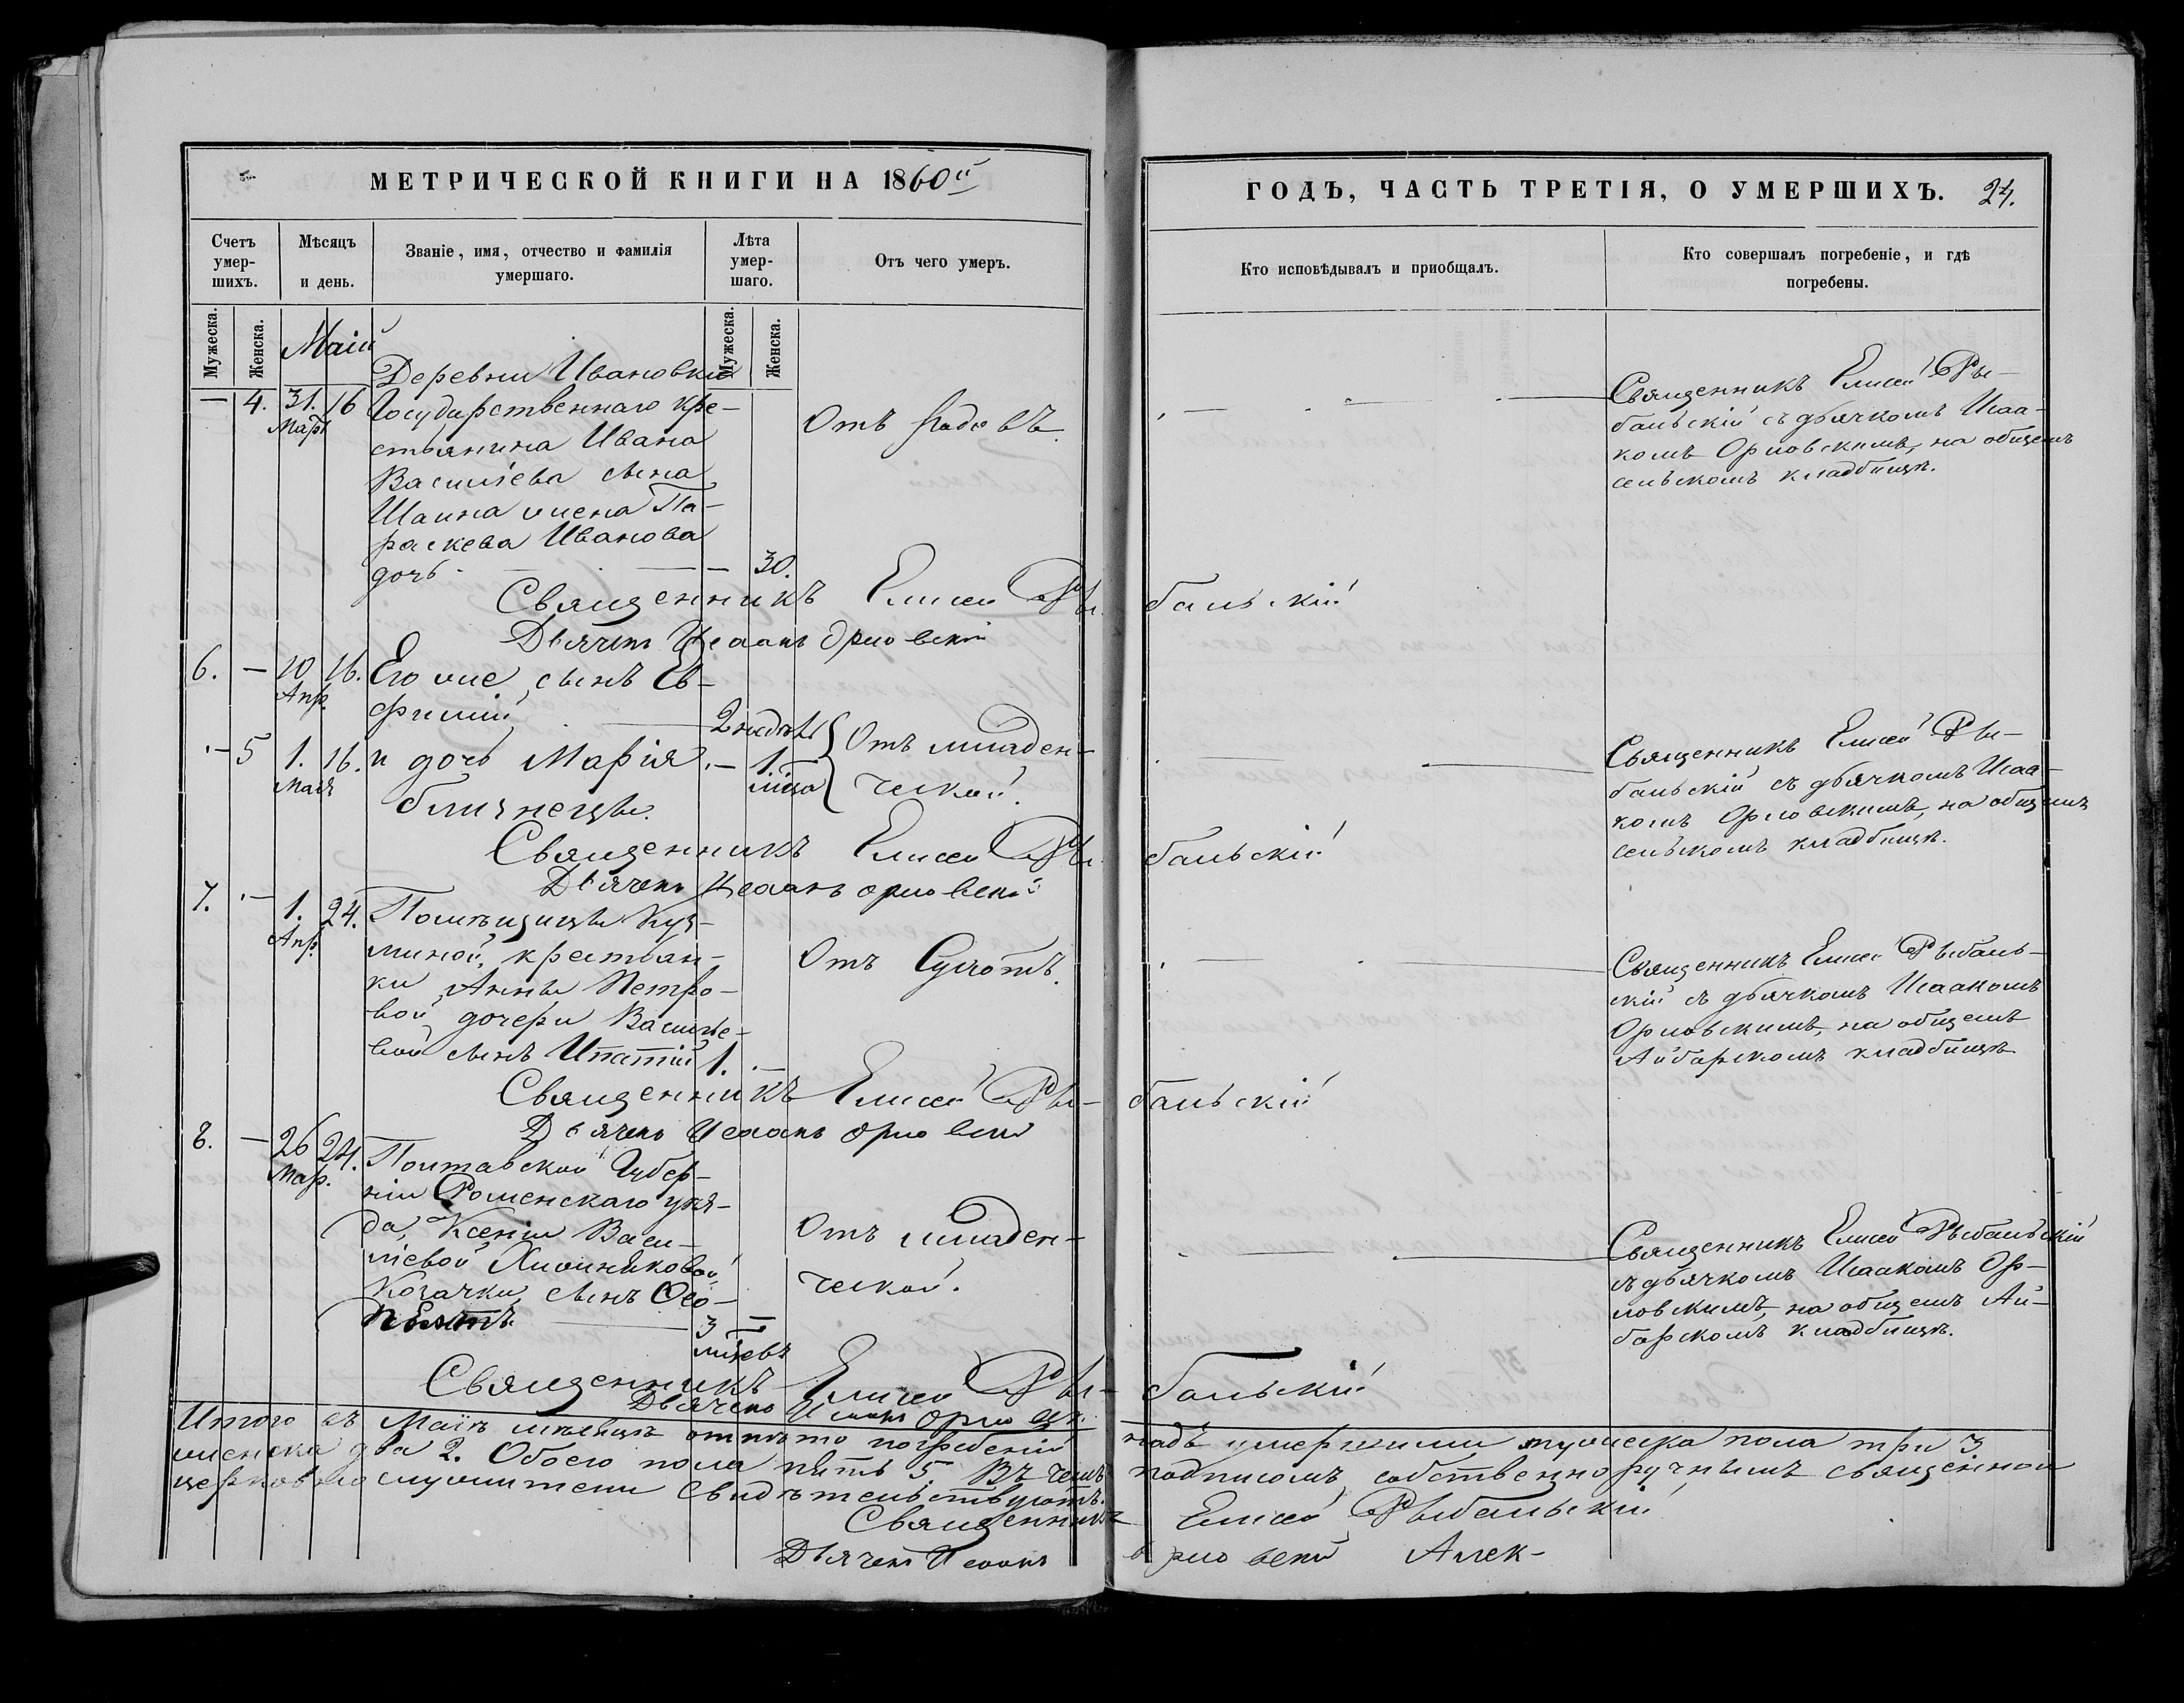 МЕТРИЧЕСКОЙ КНИГИ НА 1860й
ГОДЪ, ЧАСТЬ ТРЕТІЯ, О УМЕРШИХЪ. 24.
Счетъ умер-шихъ.
Мѣсяцъ и день.
Званіе, имя, отчество и фамилія умершаго.
Лѣта умер-шаго.
Отъ чего умеръ.
Кто исповѣдывалъ и приобщалъ.
Кто совершалъ погребеніе, и гдѣ погребены.
Мужеска. Женска.
Мужеска. Женска.
Маій
Деревни Ивановки
— 4. 31. 16 Государственнаго кре-
Март
стьянина Ивана
Василіева сына
Шаина жена Па-
раскева Иванова
дочь — — 30.
Отъ родовъ.
Священникъ Елисей Ры-
бальскій съ дьячкомъ Исаа-
комъ Орловскимъ, на общемъ
сельскомъ кладбищѣ.
Священникъ Елисей Рыбальскій
Дьячекъ Исаакъ Орловскій
6. — 10 16. Его же сынъ Ев-
Апр.
фимій — 2 недѣл.
— 5 1. 16. и дочь Марія — 1.
Мая
мѣца
близнецы.
Отъ младен-
ческой.
Священникъ Елисей Ры-
бальскій съ дьячкомъ Исаа-
комъ Орловскимъ, на общемъ
сельскомъ кладбищѣ.
Священникъ Елисей Рыбальскій
Дьячекъ Исаакъ Орловскій
7. — 1. 24. Помѣщицы Куз-
Апр.
миной, крестьян-
ки Анны Петро-
вой дочери Василье-
вой сынъ Ипатій 1. —
Отъ Сухотъ.
Священникъ Елисей Рыбаль-
скій съ дьячкомъ Исаакомъ
Орловскимъ, на общемъ
Айбарскомъ кладбищѣ.
Священникъ Елисей Рыбальскій
Дьячекъ Исаакъ Орловскій
8. — 26 24. Полтавской Губер-
Мар.
ніи Роменскаго уѣз-
да, Ксеніи Васи-
ліевой
Козачки, сынъ Ѳео-
3 —
мѣсцевъ
Отъ младен-
ческой.
Священникъ Елисей Рыбальскій
съ дьячкомъ Исаакомъ Ор-
ловскимъ, на общемъ Ай-
барскомъ кладбищѣ.
Священникъ Елисей Ры-бальскій
Дьячекъ Исаакъ
Итого въ Маіѣ мѣсяцѣ отпѣто погребеній надъ умершими мужеска пола три 3
женска два 2. Обоего пола пять 5. Въ чемъ подписомъ собственноручнымъ священно
церковно служители свидѣтельствуютъ.
Священникъ Елисей Рыбальскій
Дьячекъ Исаакъ Орловскій Алек-